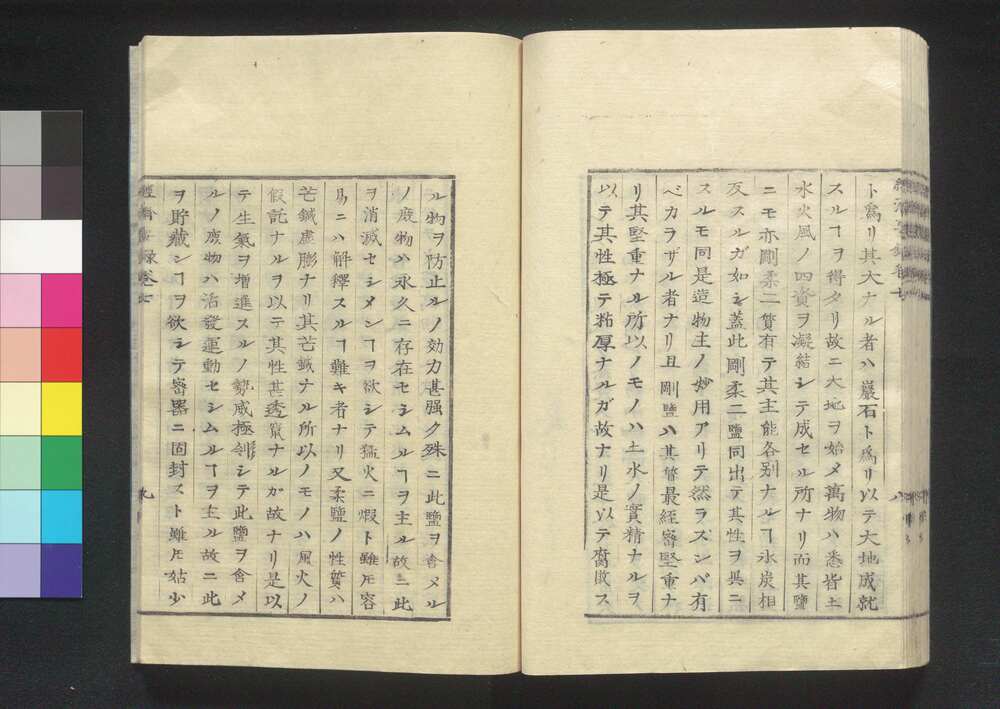 ト爲リ其大ナル者ハ巖石ト爲リ以テ大地成就
スルヿヲ得タリ故ニ大地ヲ始メ萬物ハ悉皆土
水火風ノ四資ヲ凝結シテ成セル所ナリ而其鹽
ニモ亦剛柔二質有テ其主能各別ナルヿ氷炭相
反スルガ如シ蓋此剛柔二鹽同出テ其性ヲ異ニ
スルモ同是造物主ノ妙用アリテ然ラズンバ有
ベカラザル者ナリ且剛鹽ハ其質最經密堅重ナ
リ其堅重ナル所以ノモノハ土水ノ實精ナルヲ
以テ其性極テ粘厚ナルガ故ナリ是以テ腐敗ス
ル物ヲ防止ルノ効力甚强ク殊ニ此鹽ヲ含メル
ノ廢物ハ永久ニ存在セシムルヿヲ主ル故ニ此
ヲ消滅セシメンヿヲ欲シテ猛火ニ煆ト雖𪜈容
易ニハ解釋スルヿ難キ者ナリ又柔鹽ノ性質ハ
芒鍼虛膨ナリ其芒鍼ナル所以ノモノハ風火ノ
假託ナルヲ以テ其性甚透竄ナルガ故ナリ是以
テ生氣ヲ增進スルノ勢威極シテ此鹽ヲ含メ
ルノ廢物ハ活發運動セシムルヿヲ主ル故ニ此
ヲ貯藏ンヿヲ欲シテ密器ニ固封スト雖𪜈姑少
錄卷七
九